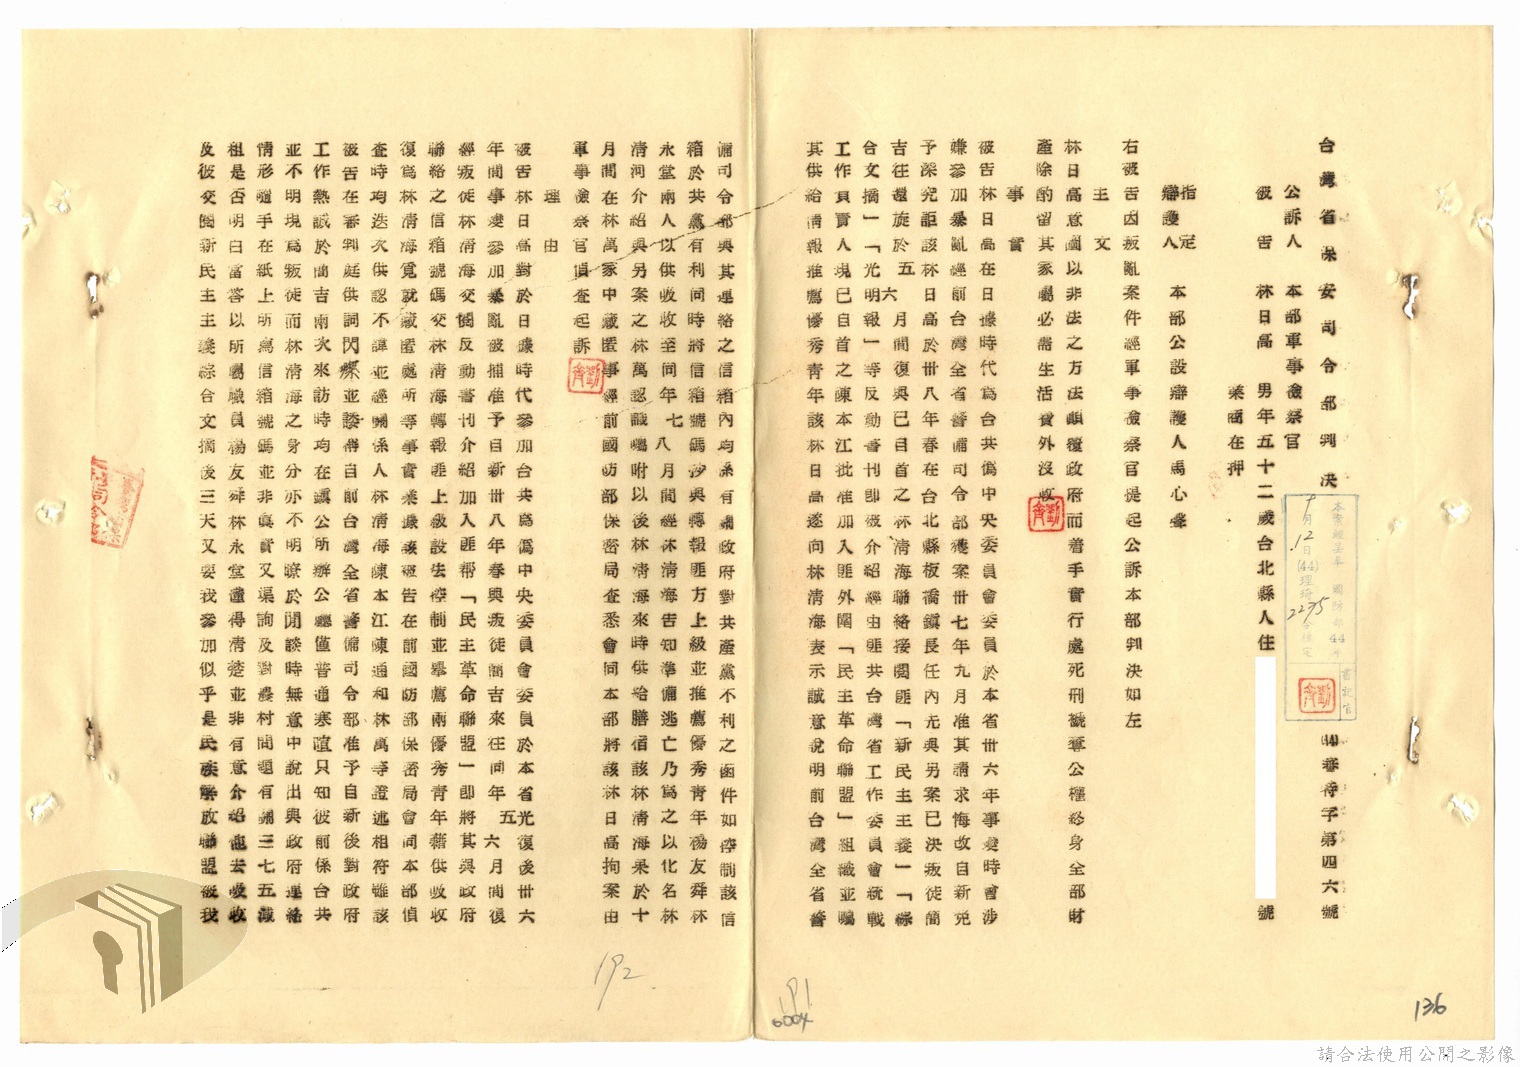 台灣省保安司令部判決
四四審特字第四六號
公訴人　本部軍事檢察官
被告　林日高　男年五十二歲台北縣人住
號
業商在押
指定
辯護人　本部公設辯護人馬心聲
右被告因叛亂案件經軍事檢察官提起公訴本部判決如左
主文
林日高意圖以非法之方法顛覆政府而着手實行處死刑褫奪公權終身全部財
產除酌留其家屬必需生活費外沒收
事實
被告林日高在日據時代為台共偽中央委員會委員於本省卅六年事變時曾涉
嫌參加暴亂經前台灣全省警備司令部獲案卅七年九月准其請求悔改自新免
予深究詎該林日高於卅八年春在台北縣板橋鎮長任內先與另案已決叛徒簡
吉往還旋於五六月間復與已自首之林清海聯絡接閱匪「新民主主義」「綜
合文摘」「光明報」等反動書刊即被介紹經由匪共台灣省工作委員會統戰
工作員賣人現已自首之陳本江批准加入匪外圍「民主革命聯盟」組織並囑
其供給情報推薦優秀青年該林日高遂向林清海表示誠意說明前台灣全省警
備司令部與其連絡之信箱內均係有關政府對共產黨不利之函件如控制該信
箱於共黨有利同時將信箱號碼抄與轉報匪方上級並推薦優秀青年楊友舜林
永堂兩人以供收收至同年七八月間經沐清海告知準備逃亡乃為之以化名林
清河介紹與另案之林萬認識囑咐以後林清海來時供給膳宿該林清海果於十
月間在林萬家中藏匿事經前國防部保密局查悉會同本部將該林日高拘案由
軍事檢察官偵查起訴
理由
被告林日高對於日據時代參加台共為偽中央委員會委員於本省光復後卅六
年間事變參加暴亂被捕准予自新卅八年春與叛徒簡吉來往同年五六月間復
經叛徒林清海交閱反動書刊介紹加入匪幫「民主革命聯盟」即將其與政府
聯絡之信箱號碼交林清海轉報匪上級設法控制並舉薦兩優秀青年藉供收收
復為林清海覓就藏匿處所等事實業據該被告在前國防部保密局會同本部偵
查時均迭次供認不諱並經關係人林清海陳本江陳通和林萬等證述相符雖該
被告在審判庭供詞閃爍並諉稱自前台灣全省警備司令部准予自新後對政府
工作熱誠於簡吉兩次來訪時均在鎮公所辦公廳僅普通寒暄只知彼前係台共
並不明現為叛徒而林清海之身分亦不明瞭於閒談時無意中說出與政府連絡
情形隨手在紙上所寫信箱號碼並非真實又渠詢及對農村問題有關三七五減
租是否明白當答以所屬職員楊友舜林永堂遣得清楚並非有意介紹他去吸收
及彼交閱新民主主義綜合文摘後三天又要我參加似乎是民族解放聯盟被我
本案經呈奉　國防部44年
9月12日(44)理琦2275令核定
書記官
192
191
6004
136
請合法使用公開之影像